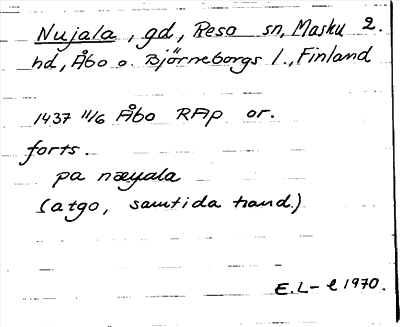 Nujala, gd, Reso sn, Masku 2.
hd, Åbo o. Björneborgs l., Finland
1437 11/6 Åbo RAp or.
forts.
pa næyala
(atgo, samtida hand.)
E.L-l 1970.